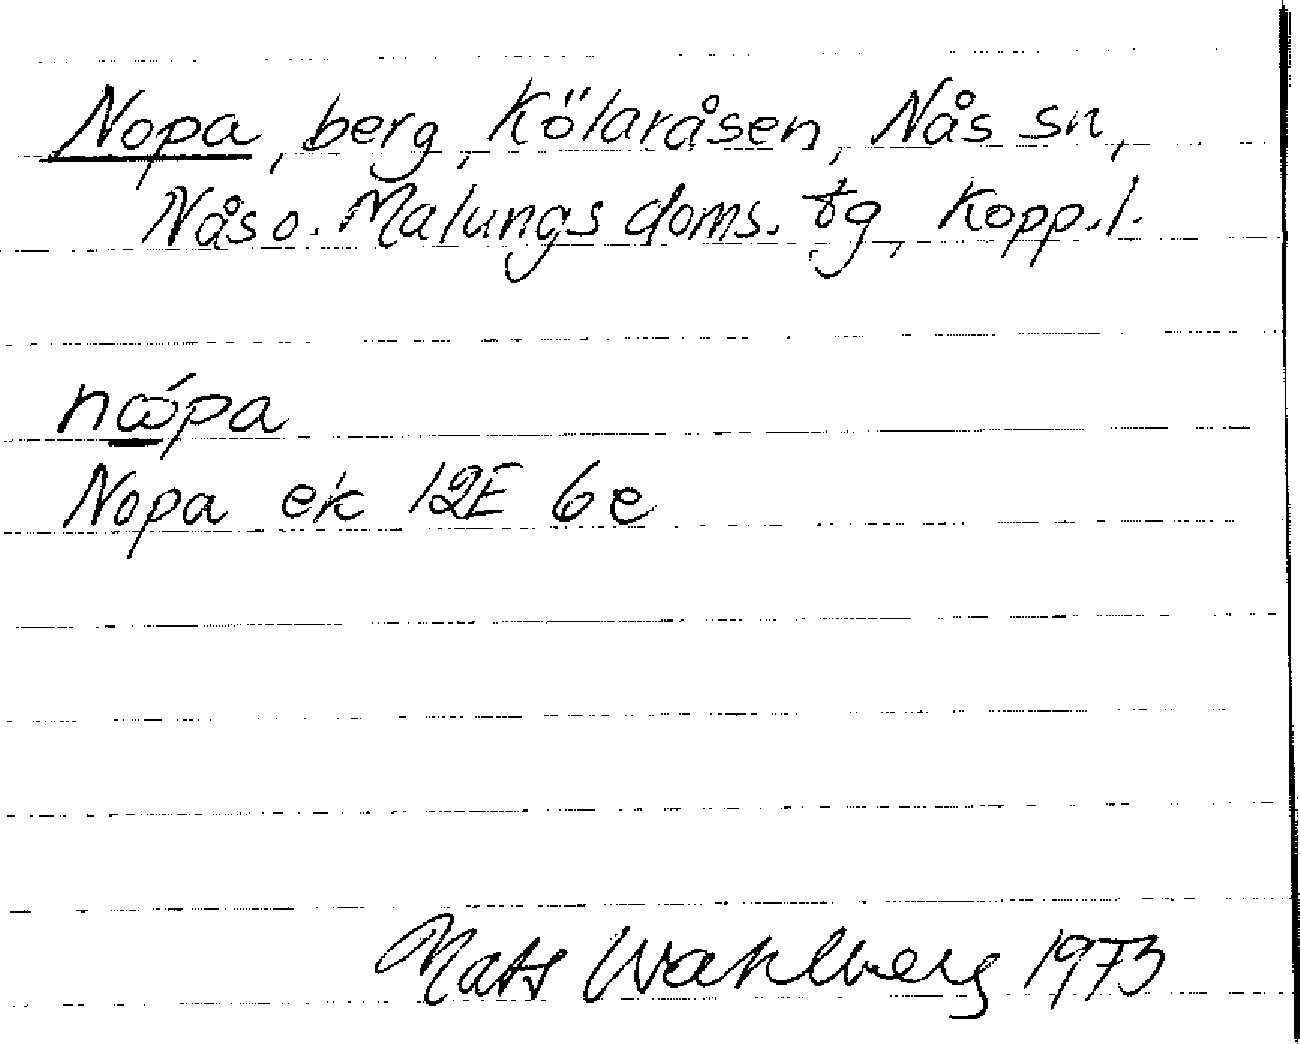 Nopa, berg, Kölaråsen, Nås sn,
Nås o. Malungs doms. tg, Kopp. l.
nώpa
Nopa ek 12E 6e
Mats Wahlberg 1973